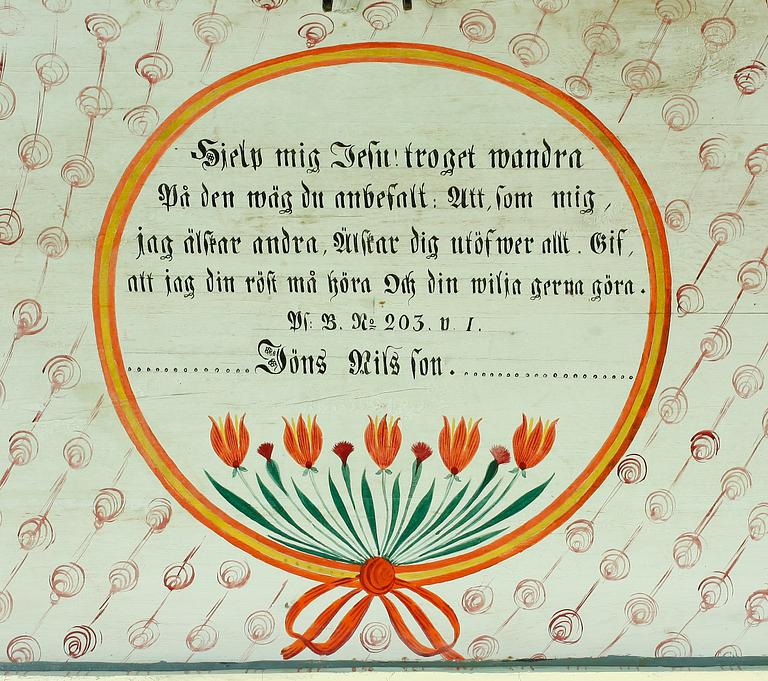 Hjelp mig Jesu! troget wandra
På den wäg du anbefalt: Att, som mig,
jag älskar andra, Älskar dig utöfwer allt. Gif,
att jag din röst må höra Och din wilja gerna göra.
Ps: B. No 203. v 1.
Jöns Nilsson.